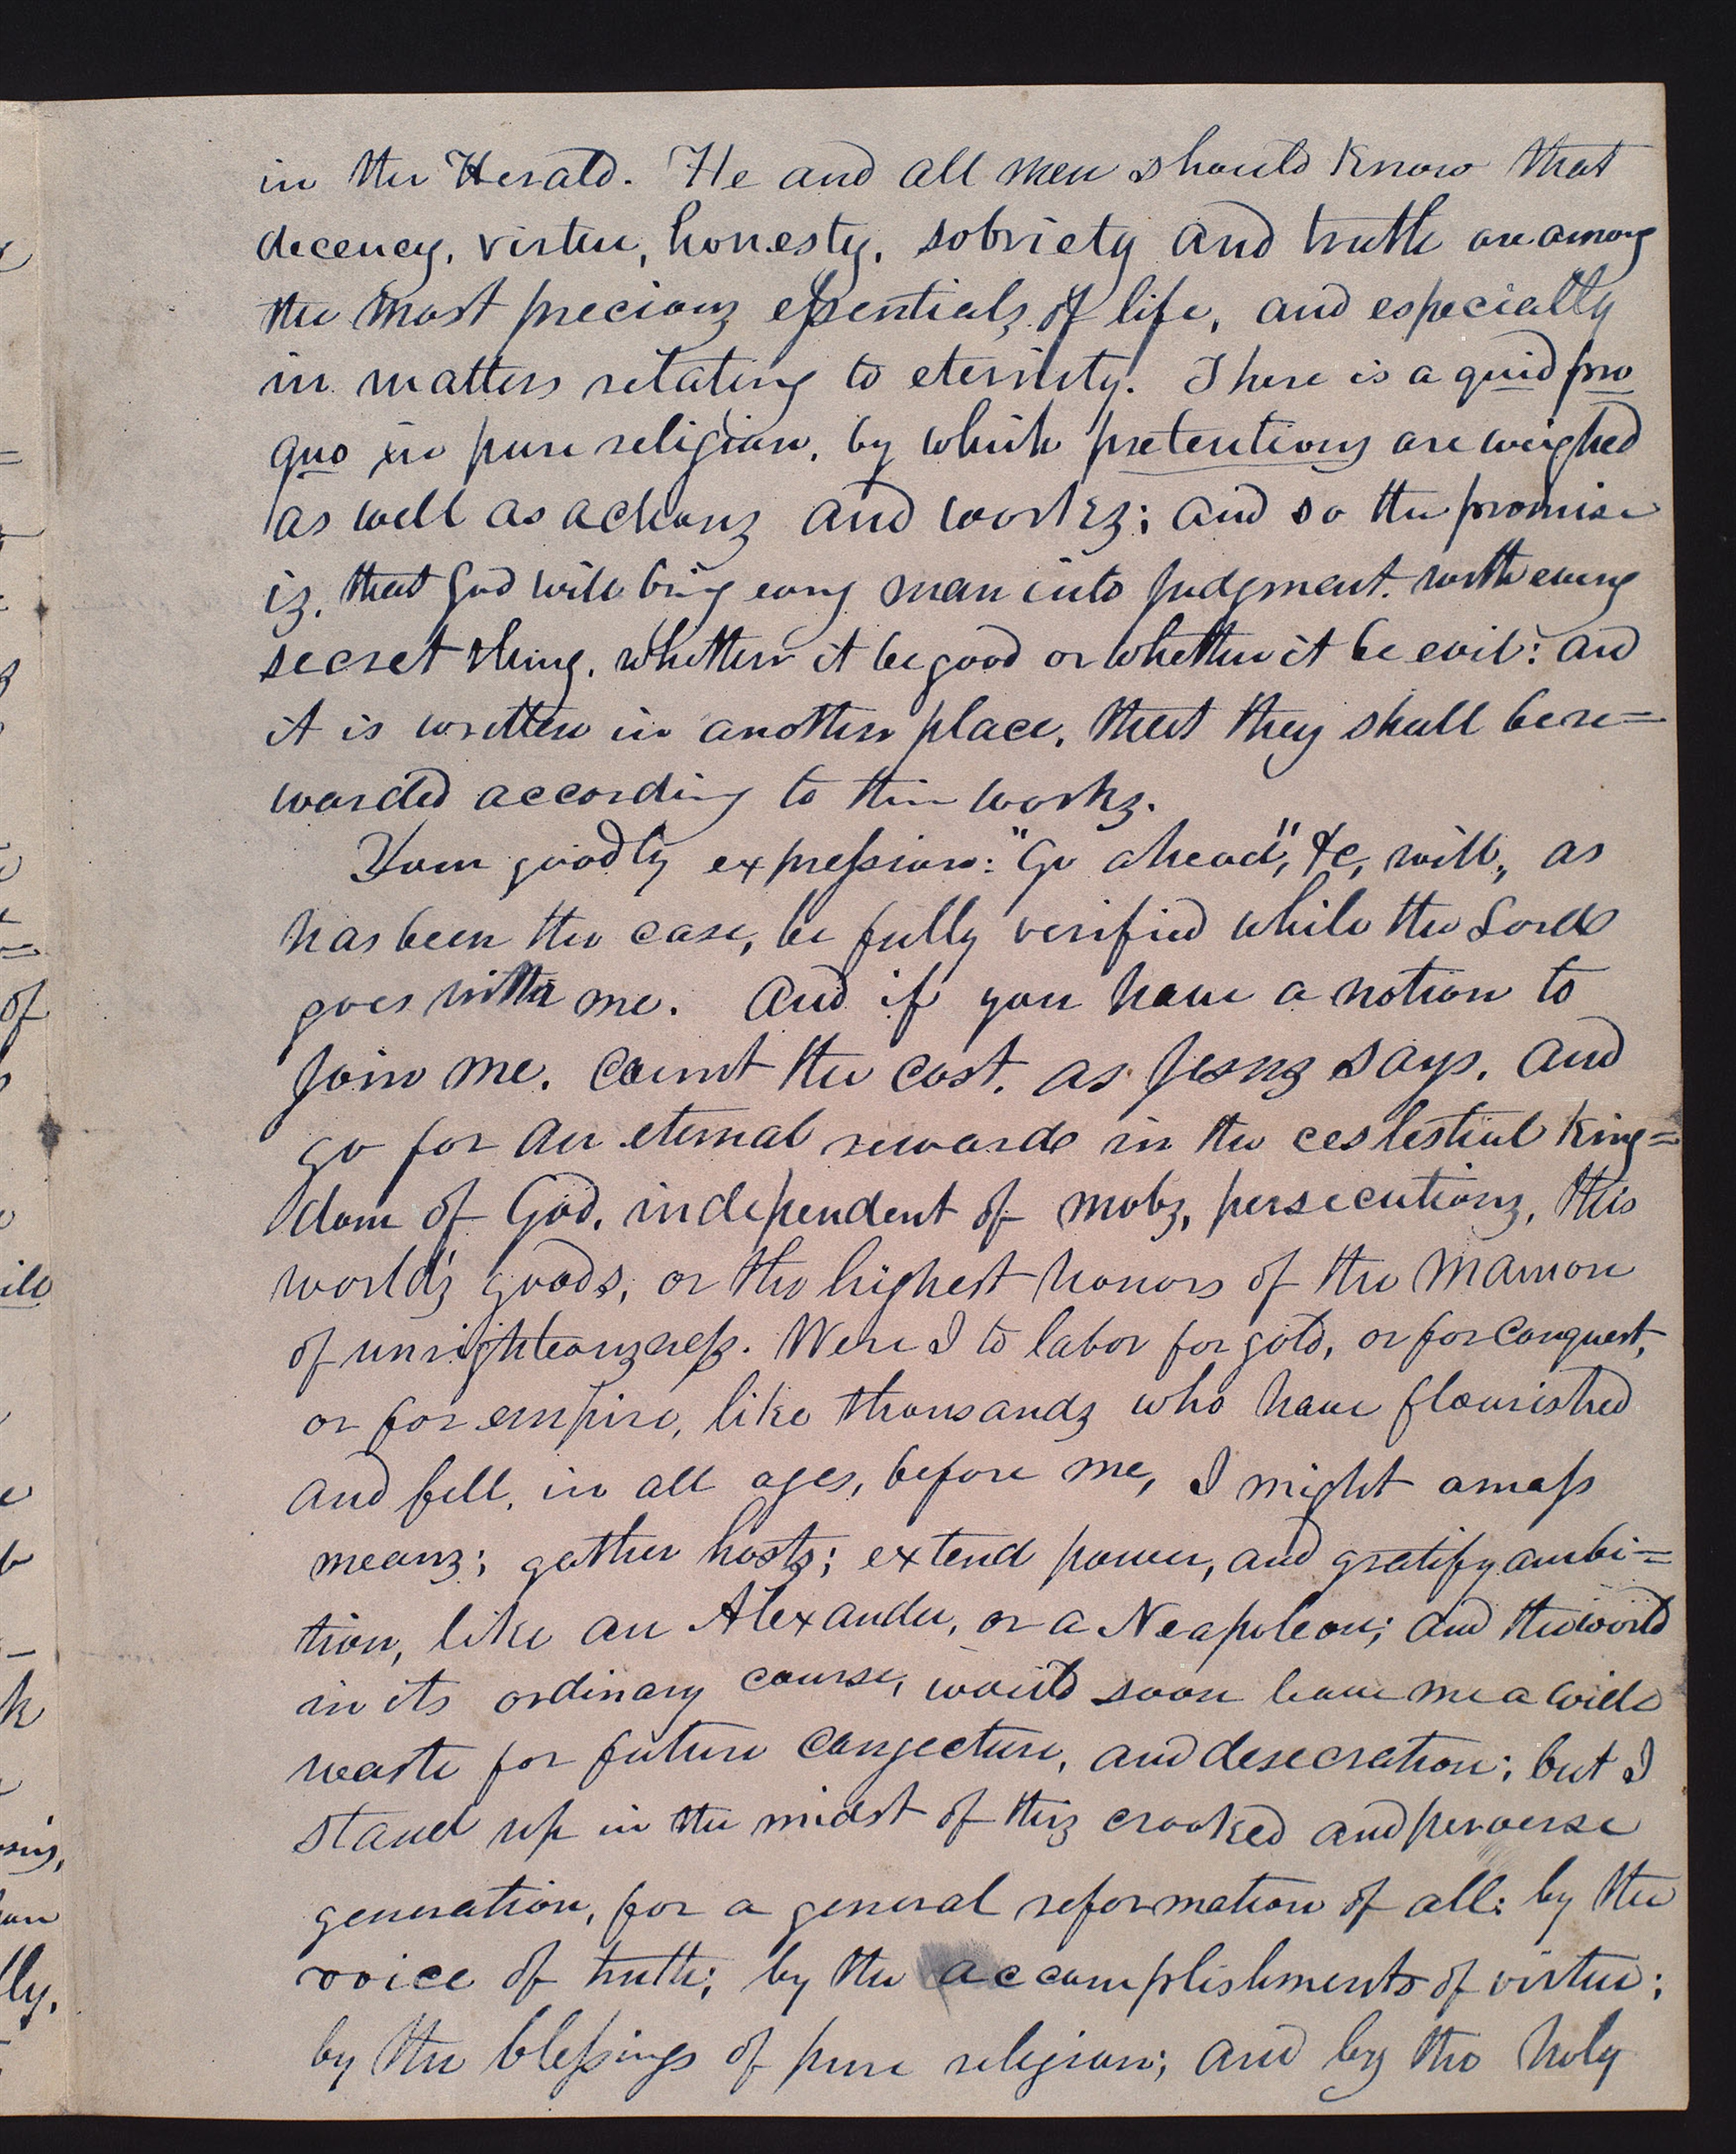 in the Herald. He and all men should know that
decency, virtue, honesty, sobriety and truth are among
the most precious essentials of life, and especially
in matters relating to eternity. There is a quid pro
quo in pure religion, by which pretentions are weighed
as well as actions and works; and so the promise
is, that God will bring every man into judgment, with every
secret thing, whether it be good or whether it be evil: and
it is written in another place, that they shall be re=
warded according to their works.
Your goodly expression: "Go ahead", &c, will, as
has been the case, be fully verified while the Lord
goes with me. And if you have a notion to
join me, count the cost, as Jesus says, and
go for an eternal reward in the ceslestial king=
dom of God, independent of mobs, persecutions, this
world's goods, or the highest honors of the mamon
of unrighteousness. Were I to labor for gold, or for conquest,
or for empire, like thousands who have flourished
and fell, in all ages, before me, I might amass
means; gather hosts; extend power, and gratify ambi=
tion, like an Alexander, or a Neapoleon; and the world
in its ordinary course, would soon leave me a wild
waste for future conjecture, and desecration; but I
stand up in the midst of this crooked and perverse
generation, for a general reformation of all: by the
voice of truth; by the accomplishments of virtue;
by the blessings of pure religion; and by the holy